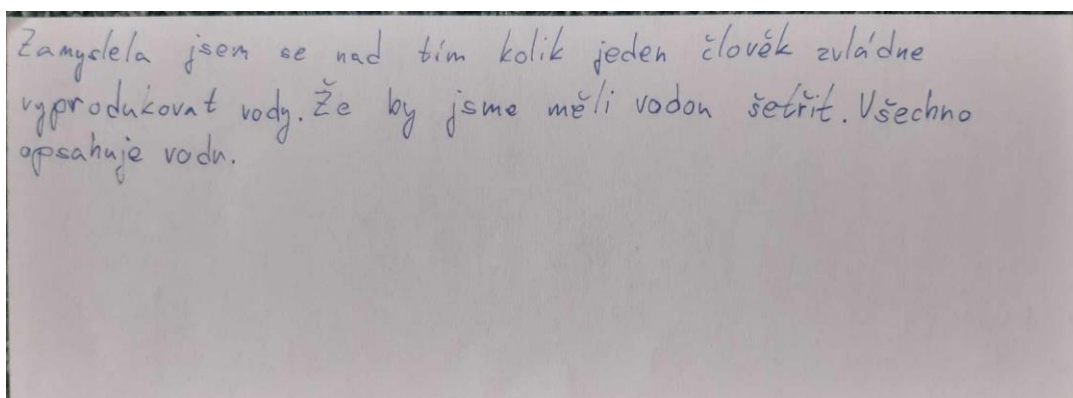 Zamyslela jsem se nad tím kolik jeden člověk zvládne
vyprodukovat vody. Že by jsme měli vodou šetřit. Všechno
opsahuje vodu.